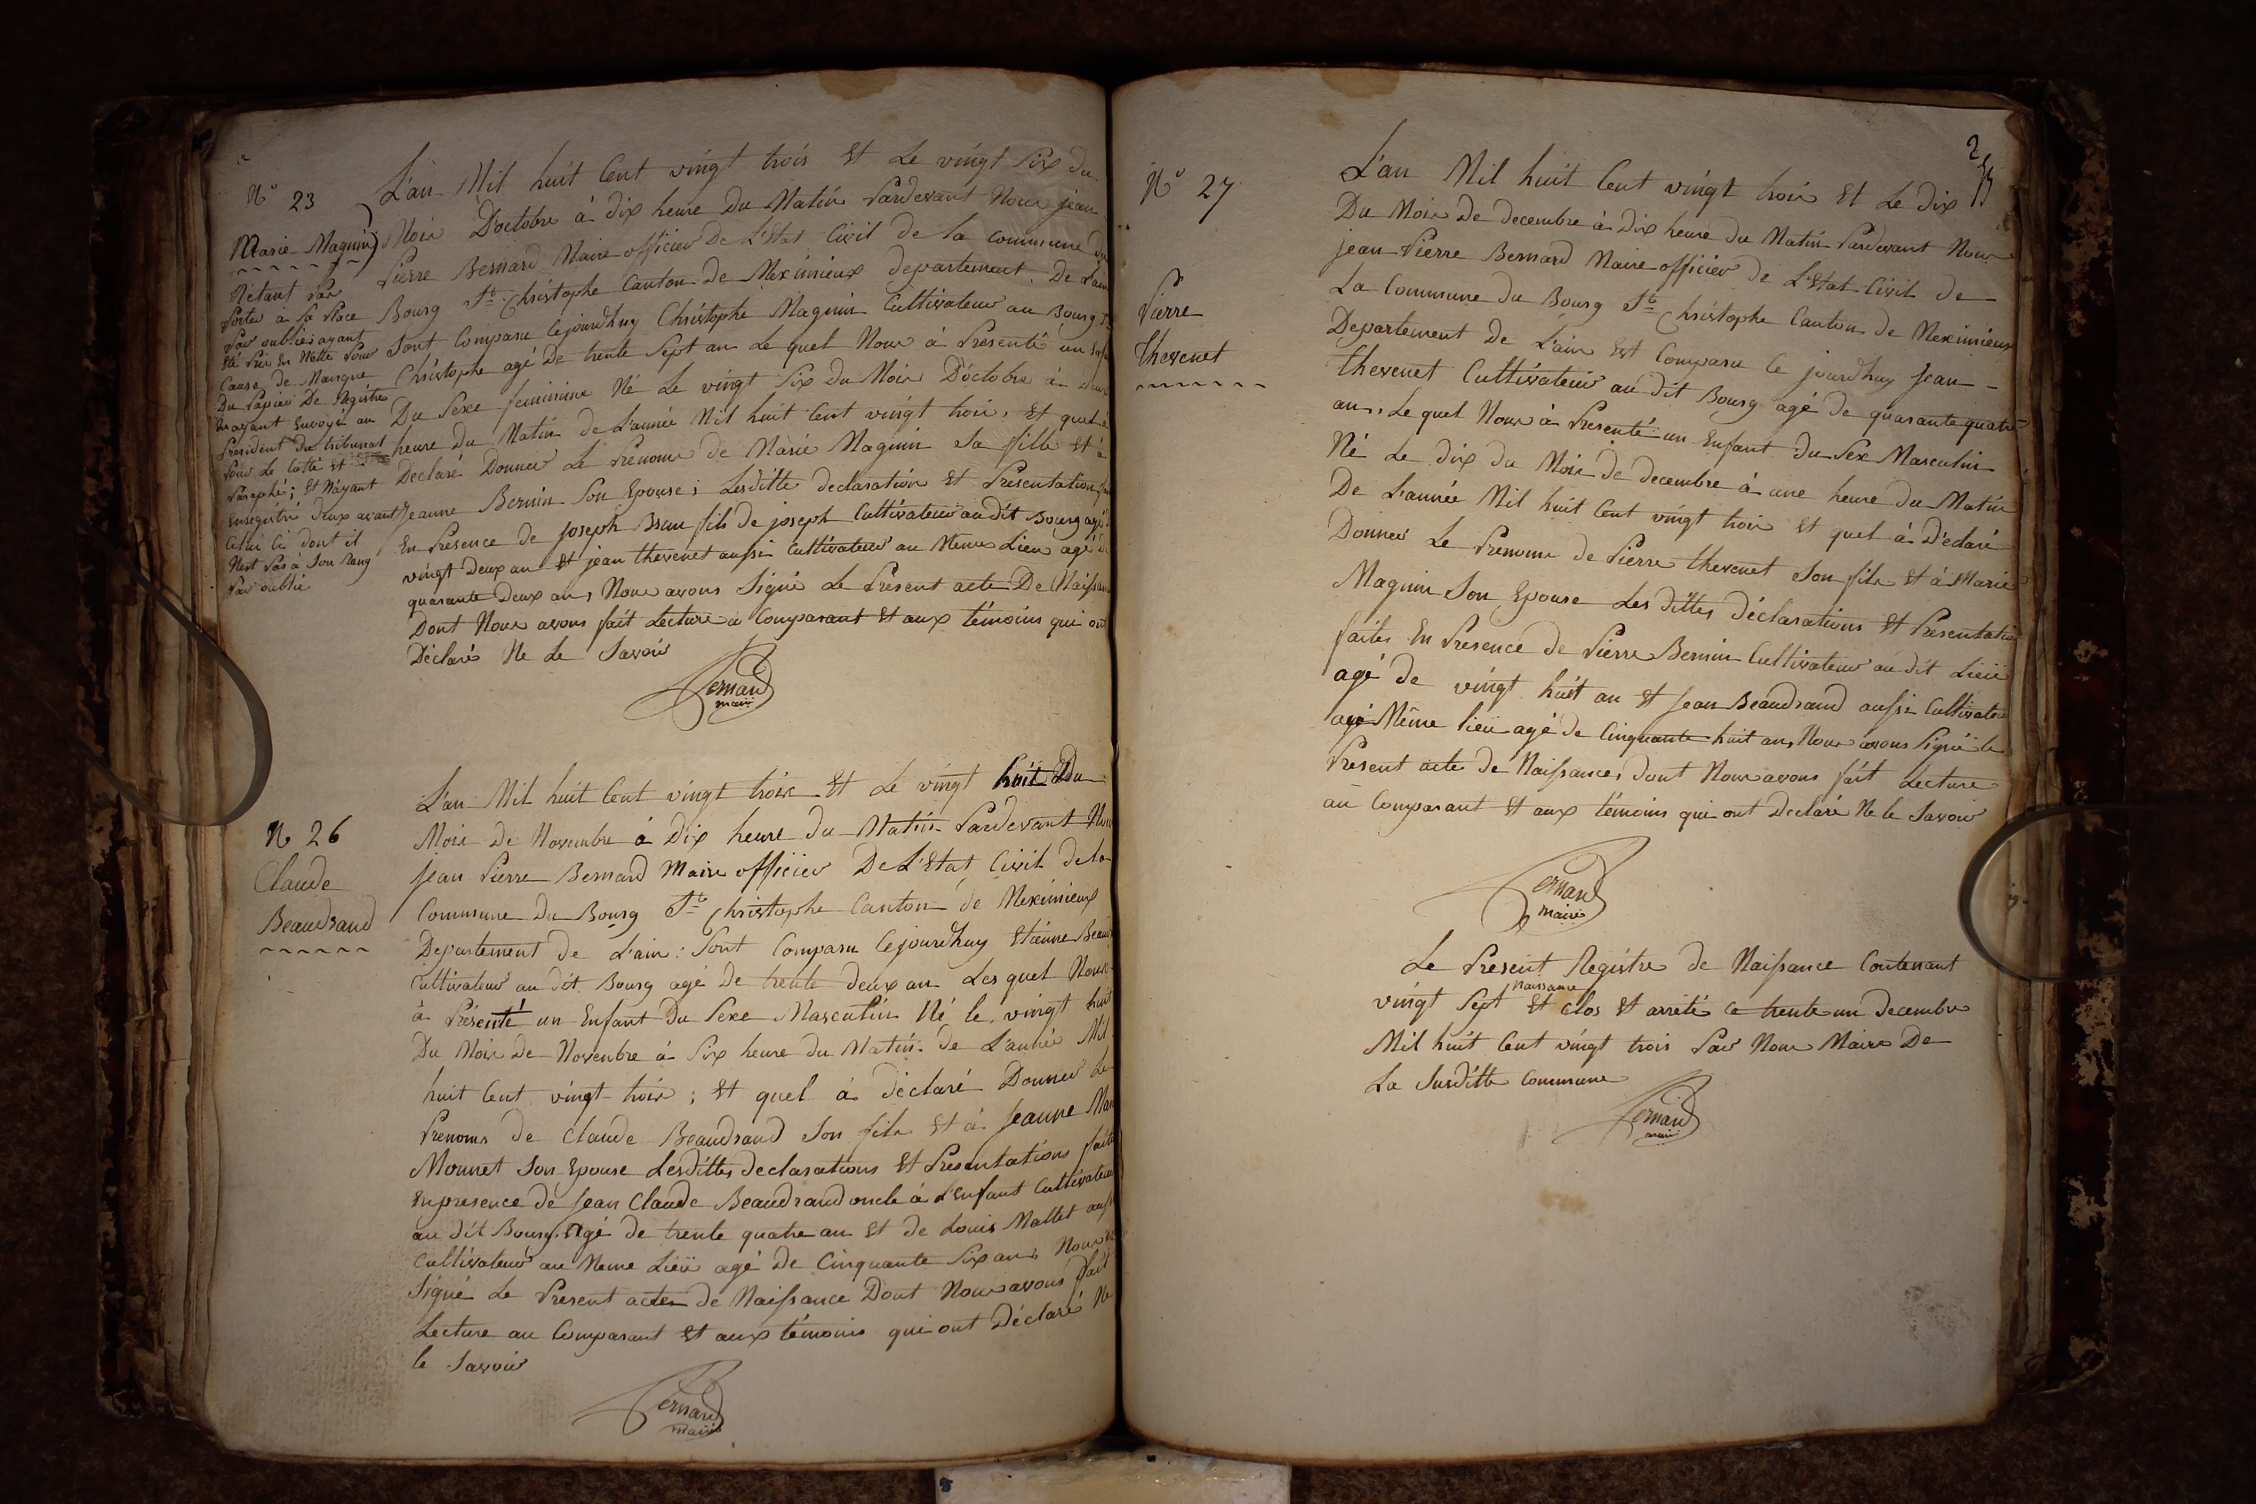 N° 23
Marie Magnin
N'étant Pas
Portée à Sa Place
Par oublie ayant
été Pris En Notte Pour
Cause de Manque
Du Papier De Registre
En ayant Envoyé au
President du tribunal
Pour Le Cotté et
Paraphé; Et N'ayant
Enregistré deux avant
Celui Ci dont il
N'est Pas à Son Rang
Par oublie
L'an Mil huit Cent vingt trois Et Le vingt Six du
Mois D'octobre à Dix heure Du Matin Pardevant Nous jean
Pierre Bernard Maire officier De L'Etat Civil de la commune du
Bourg St Christophe Canton de Meximieux departement De L'ain
Sont Comparu Cejourdhuy Christophe Magnin Cultivateur au Bourg St
Christophe agé De trente Sept an Le quel Nous à Presenté un Enfa
Du Sexe feminine Né Le vingt Six du Mois D'octobre à
heure Du Matin de L'année Mil huit Cent vingt trois, Et quel à
Declaré Donner Le Prénoms de Marie Magnin Sa fille Et à
Jeanne Bernin Son Epouse; Lesditte declaration Et Presentation
En Presence de joseph Brun fils de joseph Cultivateur audit Bourg agé
vingt Deux an Et jean thevenet aussi Cultivateur au Meme Lieu agé de
quarante Deux ans, Nous avons Signé Le Present acte De Naissan
Dont Nous avons fait Lecture à Comparant Et aux témoins qui ont
Déclarés Ne Le Savoir
Bernard
maire
N° 26
Claude
Beaudrand
L'an Mil huit Cent vingt trois Et Le vingt huit Du
Mois de Novembre à Dix heure du Matin Pardevant Nous
Jean Pierre Bernard Maire officier De L'Etat Civil de la
Commune Du Bourg St Christophe Canton de Meximieux
Departement de L'ain: Sont Comparu Cejourdhuy Etienne Beaud
Cultivateur au dit Bourg agé De trente deux an Les quel Nous
à Présenté un Enfant Du Sexe Masculin Né le vingt huit
Du Mois De Novenbre à Six heure du Matin de L'année Mil
huit Cent vingt trois; Et quel à déclaré Donner Le
Prenoms de Claude Beaudrand Son fils Et à Jeanne Marie
Monnet Son Epouse Lesdittes declarations Et Presentations faite
En presence de Jean Claude Beaudrand oncle à L'Enfant Cultivateur
au dit Bourg, Agé de trente quatre an Et de Louis Mallet aussi
Cultivateur au Meme Lieü agé De Cinquante Six ans Nous
Signé Le Present actes de Naissance Dont Nous avons fait
Lecture au Comparant Et aux témoins qui ont Déclaré Ne
le Savoir
Bernard
maire
N° 27
Pierre
thevenet
L'an Mil huit Cent vingt trois Et Le Dix
Du Mois De decembre à Dix heure du Matin Pardevant Nous
jean Pierre Bernard Maire officier de L'Etat Civil de
La Commune du Bourg St Christophe Canton de Meximieux
Departement de L'ain Est Comparu Ce jourdhuy Jean
thevenet Cultivateur au dit Bourg agé de quarante quatre
ans, Le quel Nous à Presenté un Enfant du Sex Masculin
Né Le dix du Mois de decembre à une heure du Matin
De L'année Mil huit Cent vingt trois Et quel à Déclaré
Donner Le Prenoms de Pierre thevenet Son fils Et à Marie
Magnin Son Epouse Les dittes déclarations Et Presentation
faites En Presence de Pierre Bernin Cultivateur au dit Lieü
agé de vingt huit an Et Jean Beaudrand aussi Cultivateur
au Même lieü agé de Cinquante huit ans, Nous avons Signé le
Present acte de Naissance, dont Nous avons fait Lecture
au Comparant Et aux témoins qui ont Declaré Ne le Savoir
Bernard
maire
Le Present Registre de Naissance Contenant
vingt Sept Naissance Et clos Et arrêté ce trente un decembre
Mil huit Cent vingt trois Par Nous Maire De
La Susditte commune
Bernard
maire